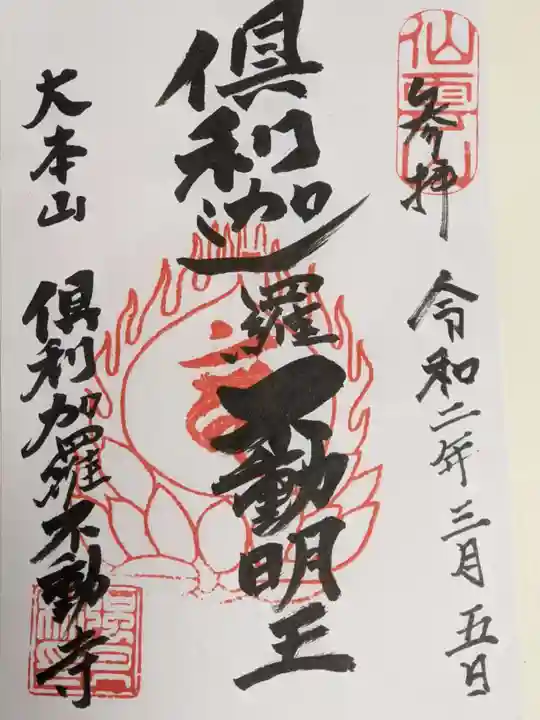 参拝 令和二年三月五日
倶利迦羅不動明王
大本山 倶利加羅不動寺